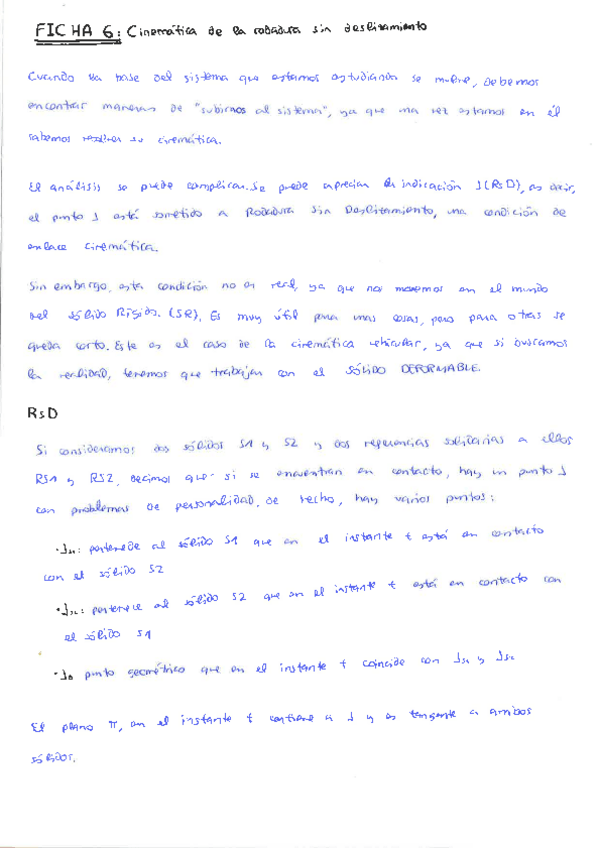 FICHA 6: Cinemática de la rodadura sin deslizamiento
Cuando la base del sistema que estamos estudiando se mueve, debemos
encontrar maneras de "subirnos al sistema", ya que una vez estamos en él
sabemos resolver su cinemática.
El análisis se puede complicar. Se puede apreciar la indicación J(RsD), es decir,
el punto J está sometido a Rodadura Sin Deslizamiento, una condición de
enlace cinemática.
Sin embargo, esta condición no es real, ya que nos movemos en el mundo
del Sólido Rígido. (SR), Es muy útil para unas cosas, pero para otras se
queda corto. Este es el caso de la cinemática vehicular, ya que si buscamos
la realidad, tenemos que trabajar con el SÓLIDO DEFORMABLE.
RsD
Si consideramos dos sólidos S1 y S2 y dos referencias solidarias a ellos
RS1 y RS2, decimos que si se encuentran en contacto, hay un punto J
con problemas de personalidad. de hecho, hay varios puntos:
· Js1: pertenece al sólido S1 que en el instante t está en contacto
con el sólido S2
· Js2: pertenece al sólido S2 que en el instante t está en contacto con
el sólido S1
· punto geométrico que en el instante t coincide con Js1 y Js2
El plano π, en el instante t contiene a J y es tangente a ambos
sólidos.